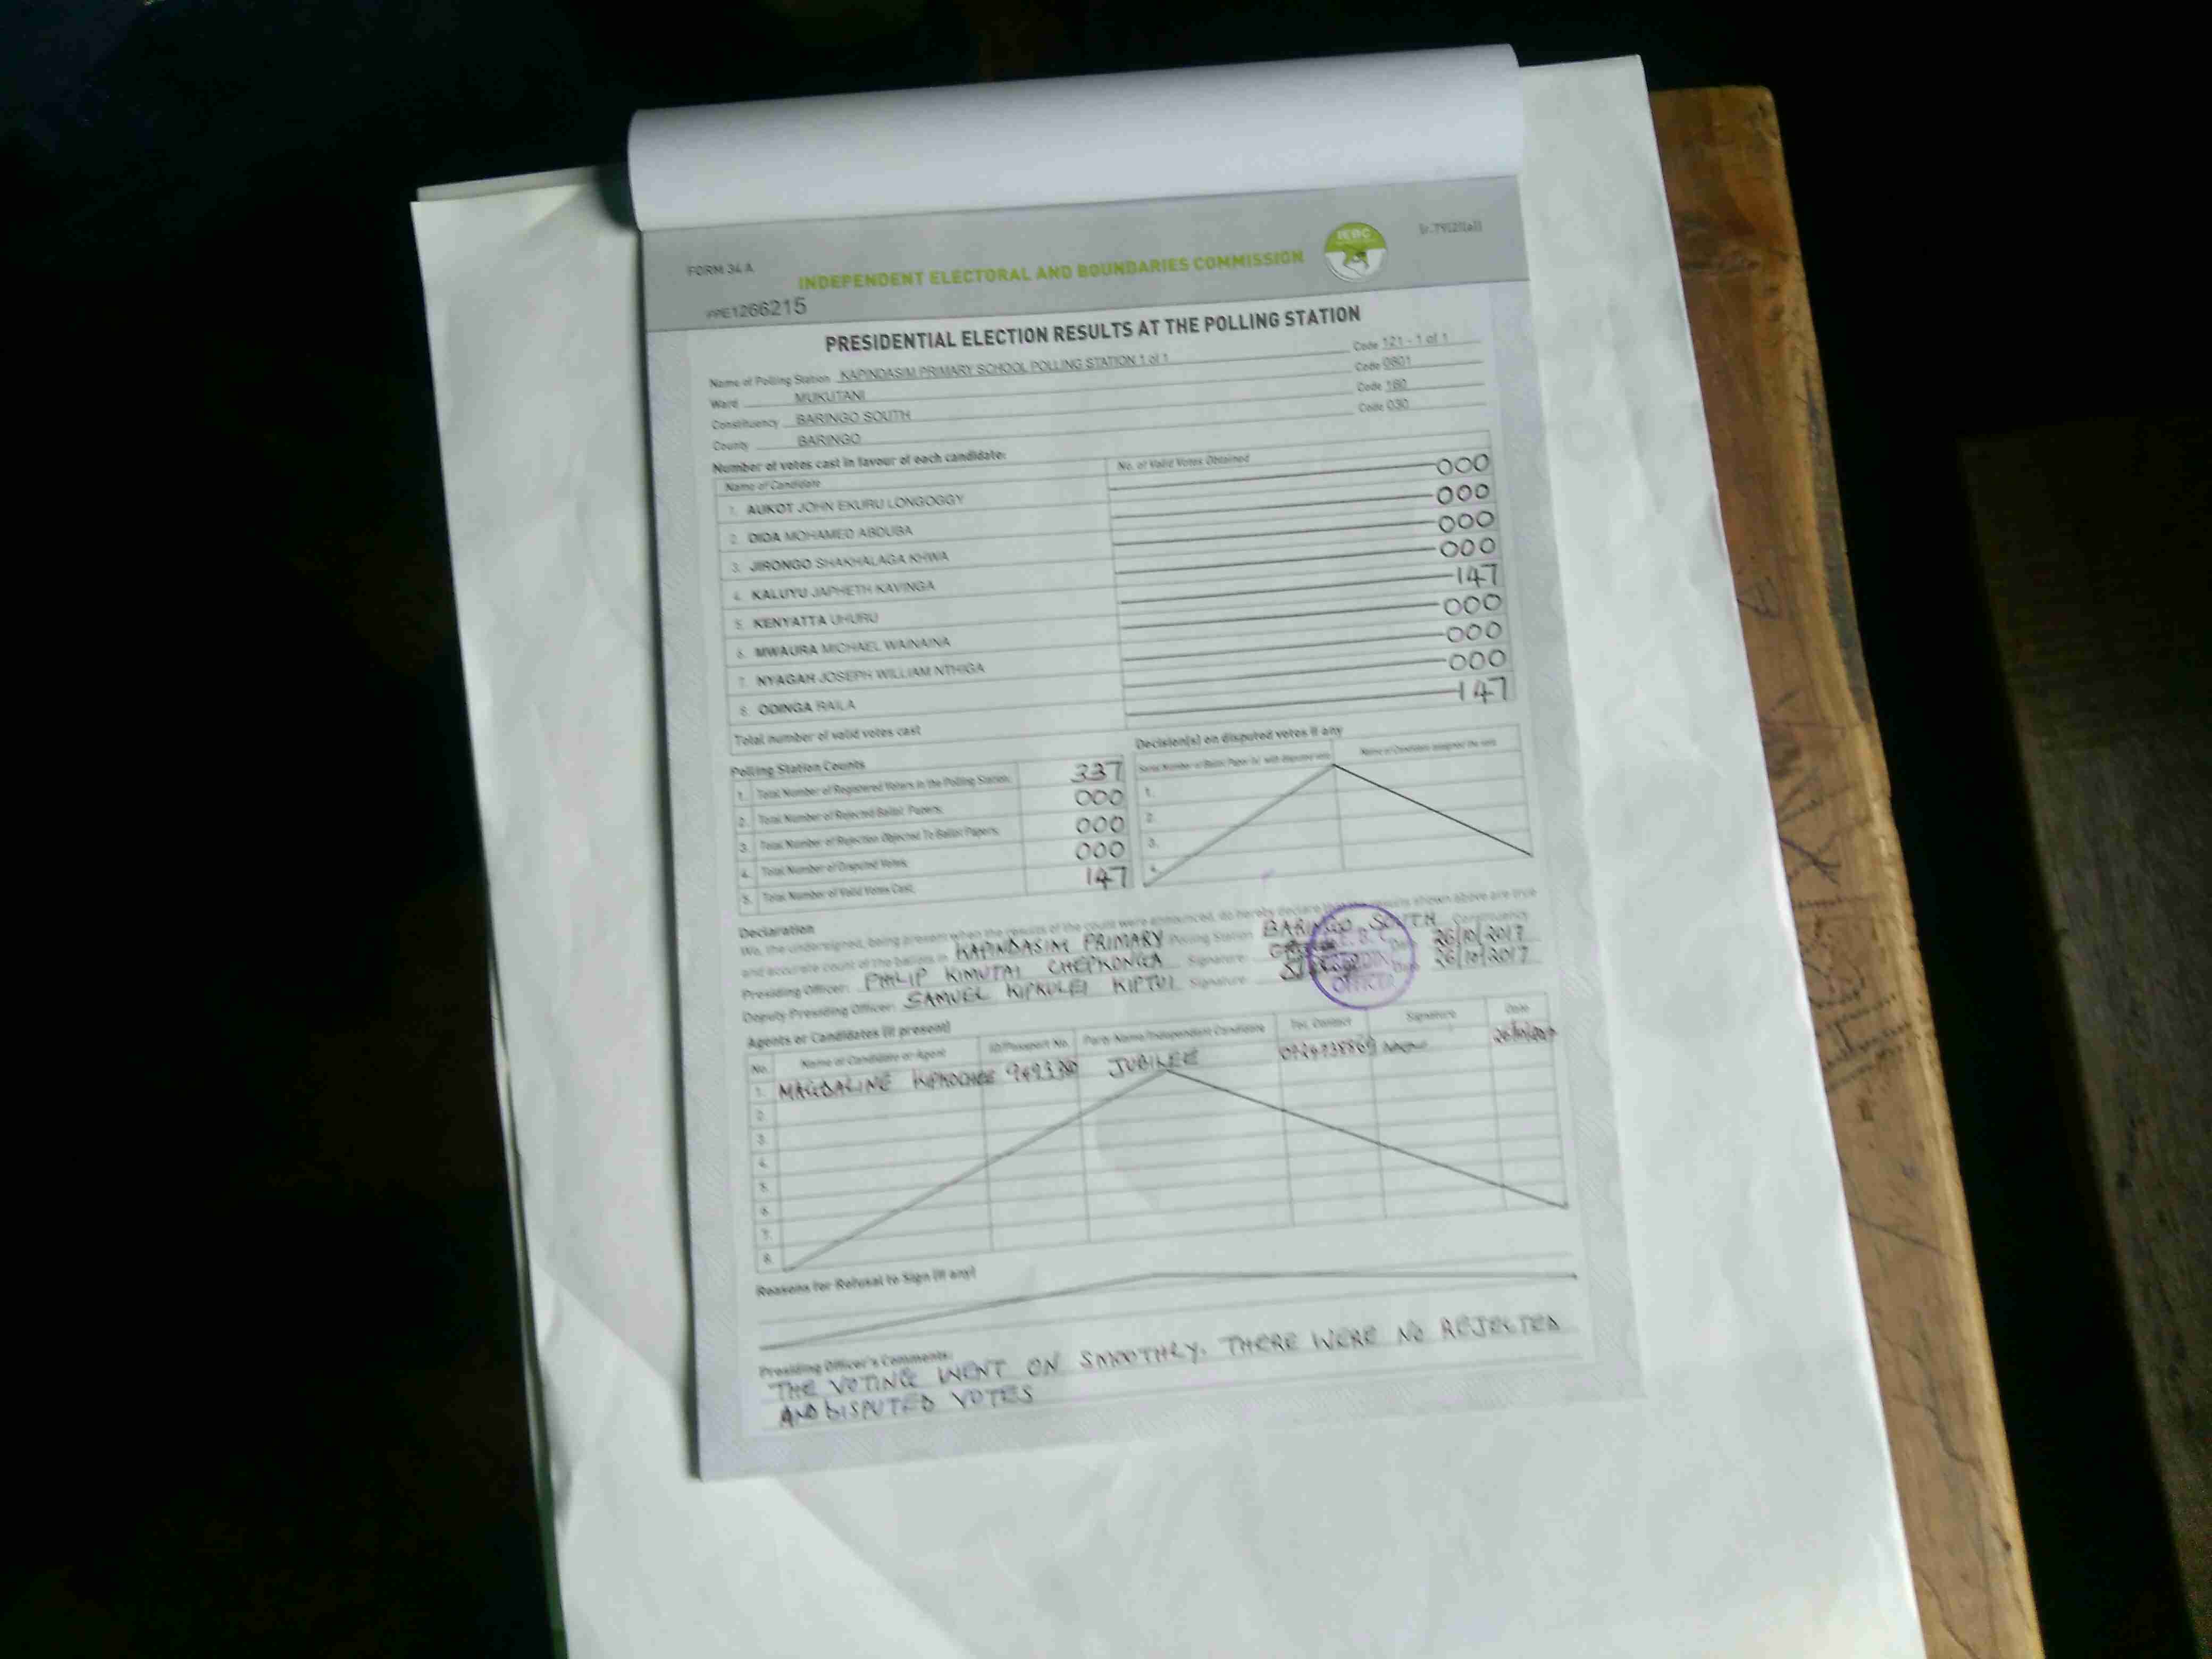 FORM 34 A
INDEPENDENT ELECTORAL AND BOUNDARIES COMMISSION
IEBC
PRESIDENTIAL ELECTION RESULTS AT THE POLLING STATION
Name of Polling Station KAPINDASIM PRIMARY SCHOOL POLLING STATION 1 of 1 Code 121 - 1 of 1
Ward MUKUTANI Code 0801
Constituency BARINGO SOUTH Code 160
County BARINGO Code 030
Number of votes cast in favour of each candidate:
Name of Candidate No. of Valid Votes Obtained
1. AUKOT JOHN EKURU LONGOGGY 000
2. DIDA MOHAMED ABDUBA 000
3. JIRONGO SHAKHALAGA KHWA 000
4. KALUYU JAPHETH KAVINGA 000
5. KENYATTA UHURU 147
6. MWAURA MICHAEL WAINAINA 000
7. NYAGAH JOSEPH WILLIAM NTHIGA 000
8. ODINGA RAILA 000
Total number of valid votes cast 147
Polling Station Counts
1. Total Number of Registered Voters in the Polling Station 337
2. Total Number of Rejected Ballot Papers 000
3. Total Number of Rejection Objected To Ballot Papers 000
4. Total Number of Disputed Votes 000
5. Total Number of Valid Votes Cast 147
Decision(s) on disputed votes if any
Serial Number of Ballot Paper (s) with disputed vote Name of Candidate assigned the vote
1.
2.
3.
4.
Declaration
We, the undersigned, being present when the results of the count were announced, do hereby declare that the results shown above are true
and accurate count of the ballots in KAPINDASIM PRIMARY Polling Station BARINGO SOUTH Constituency
Presiding Officer: PHILIP KIMUTAI CHEPKONGA Signature: Date 26/10/2017
Deputy Presiding Officer: SAMUEL KIPKULEI KIPTUI Signature: Date 26/10/2017
OFFICER
Agents or Candidates (if present)
No. Name of Candidate or Agent ID/Passport No. Party Name/Independent Candidate Tel. Contact Signature Date
1. MAGDALINE JUBILEE 26/10/2017
2.
3.
4.
5.
6.
7.
8.
Reasons for Refusal to Sign (if any)
Presiding Officer's Comments:
THE VOTING WENT ON SMOOTHLY. THERE WERE NO REJECTED
AND DISPUTED VOTES